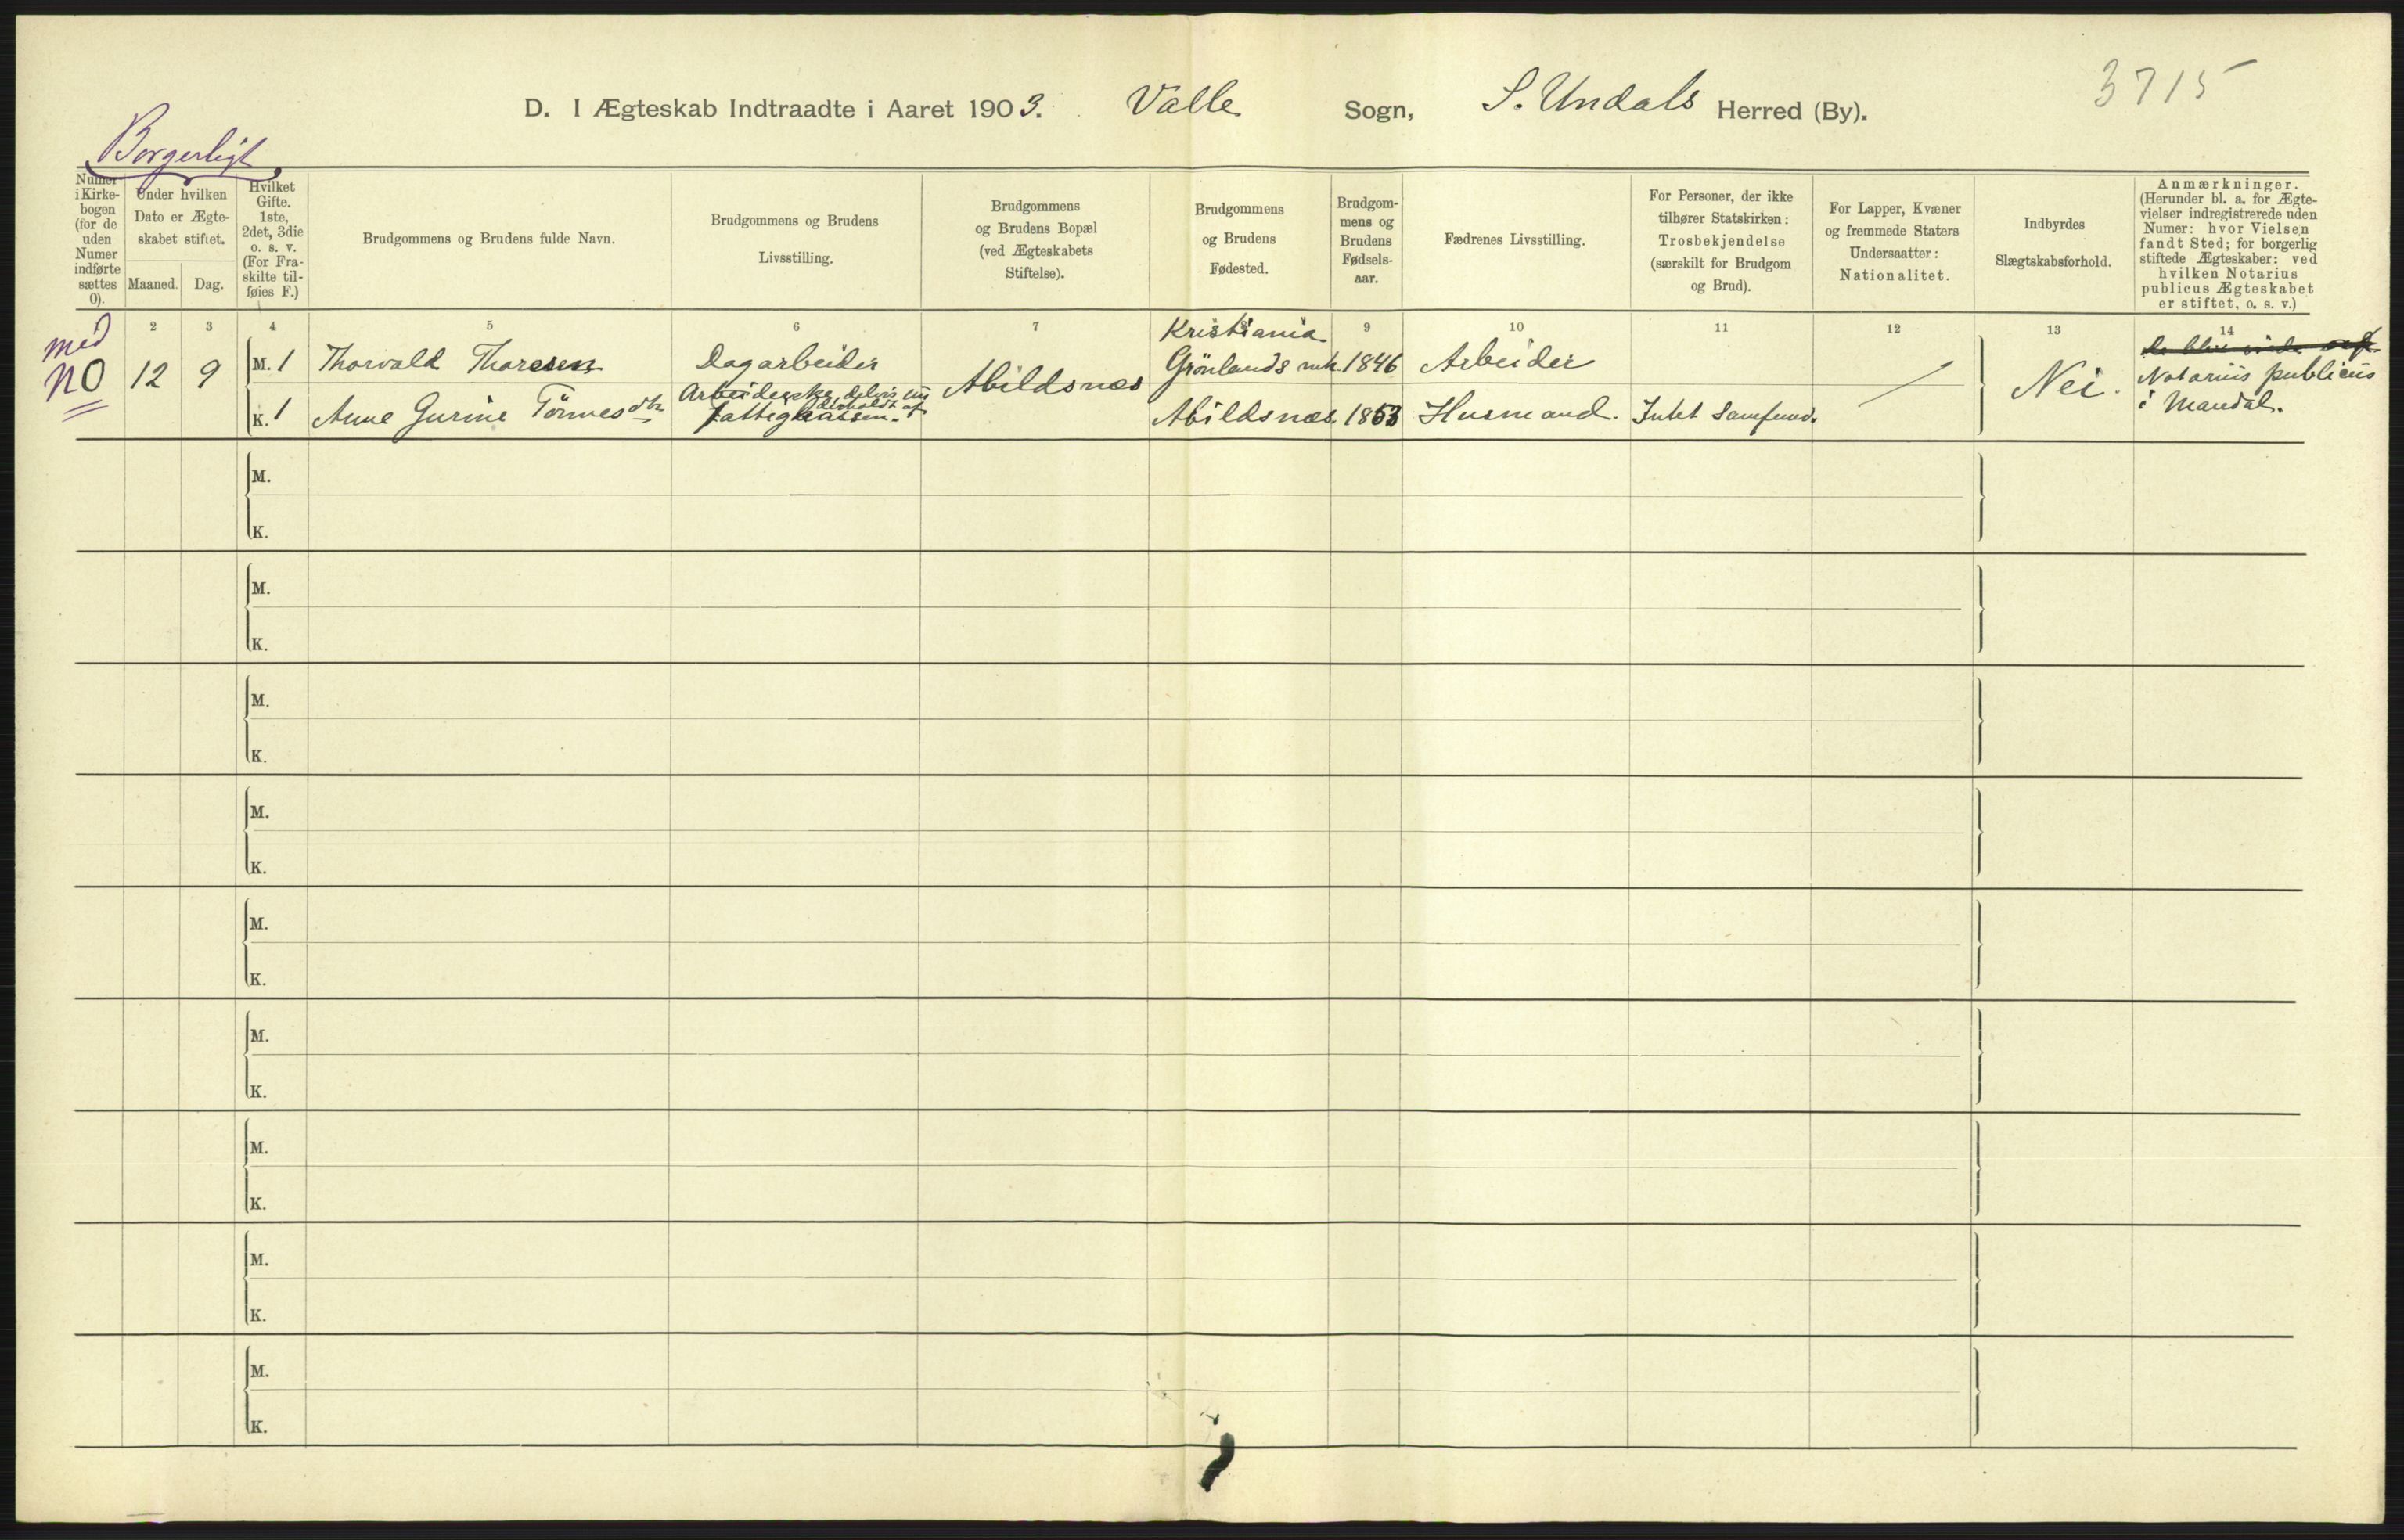 3715
D. I Ægteskab Indtraadte i Aaret 1903. Valle Sogn, S. Undals Herred (By).
Borgerligt
Numer i Kirkebogen (for de uden Numer indførte sættes 0).
Under hvilken Dato er Ægteskabet stiftet.
Maaned. Dag.
Hvilket Gifte. 1ste, 2det, 3die o. s. v. (For Fraskilte tilføies F.)
Brudgommens og Brudens fulde Navn.
Brudgommens og Brudens Livsstilling.
Brudgommens og Brudens Bopæl (ved Ægteskabets Stiftelse).
Brudgommens og Brudens Fødested.
Brudgommens og Brudens Fødselsaar.
Fædrenes Livsstilling.
For Personer, der ikke tilhører Statskirken: Trosbekjendelse (særskilt for Brudgom og Brud).
For Lapper, Kvæner og fremmede Staters Undersaatter: Nationalitet.
Indbyrdes Slægtskabsforhold.
Anmærkninger. (Herunder bl. a. for Ægtevielser indregistrerede uden Numer: hvor Vielsen fandt Sted; for borgerlig stiftede Ægteskaber: ved hvilken Notarius publicus Ægteskabet er stiftet, o. s. v.)
2 3 4 5 6 7 8 9 10 11 12 13 14
med
no 12 9
M. 1 Thorvald Thoresen Dagarbeider Abildsnæs Kristiania Grönlands mh. 1846 Arbeider
K. 1 Anne Gurine Tönnesdtr Arbeiderske, delvis underholdt af fattigkassen. Abildsnæs. 1853 Husmand. Intet Samfund.
Nei.
Notarius publicus
i Mandal.
M.
K.
M.
K.
M.
K.
M.
K.
M.
K.
M.
K.
M.
K.
M.
K.
M.
K.